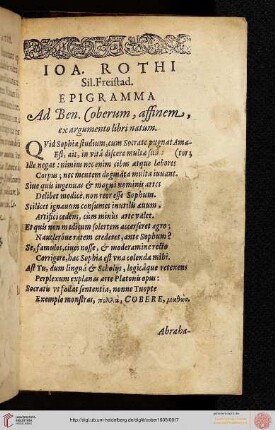 IOA. ROTHI
Sil. Freistad.
EPIGRAMMA
Ad Ben. Coberum, affinem,
ex argumento libri natum.
QVid Sophiæ studium, cum Socrate pugnat Ama-
Est, ait, in vitâ discere multa suâ: (tor,
Ille negat: nimium nec enim cibus atque labores
Corpus; nec mentem dogmata multa iuvant.
Siue quis ingenuas & magni nominis artes
Delibet modicè, non rear esse Sophum.
Scilicet ignauum consumet inutilis annum,
Artifici cedens, cùm minùs arte valet.
Et quis non medicum solertem accerseret ægro;
Nauclerúmve ratem crederet, ante Sophum?
Se, famulos, ciues nosse, & moderamine recto
Corrigere, hac Sophia est vna colenda mihi.
Ast Tu, dum linguâ & Scholijs, logicâque retexens
Perplexum explanas arte Platonis opus:
Socratis vt fallat sententia, nonne Tuopte
Exemplo monstras, COBERE,
Abraha-
UNIVERSITÄTS-
BIBLIOTHEK
HEIDELBERG